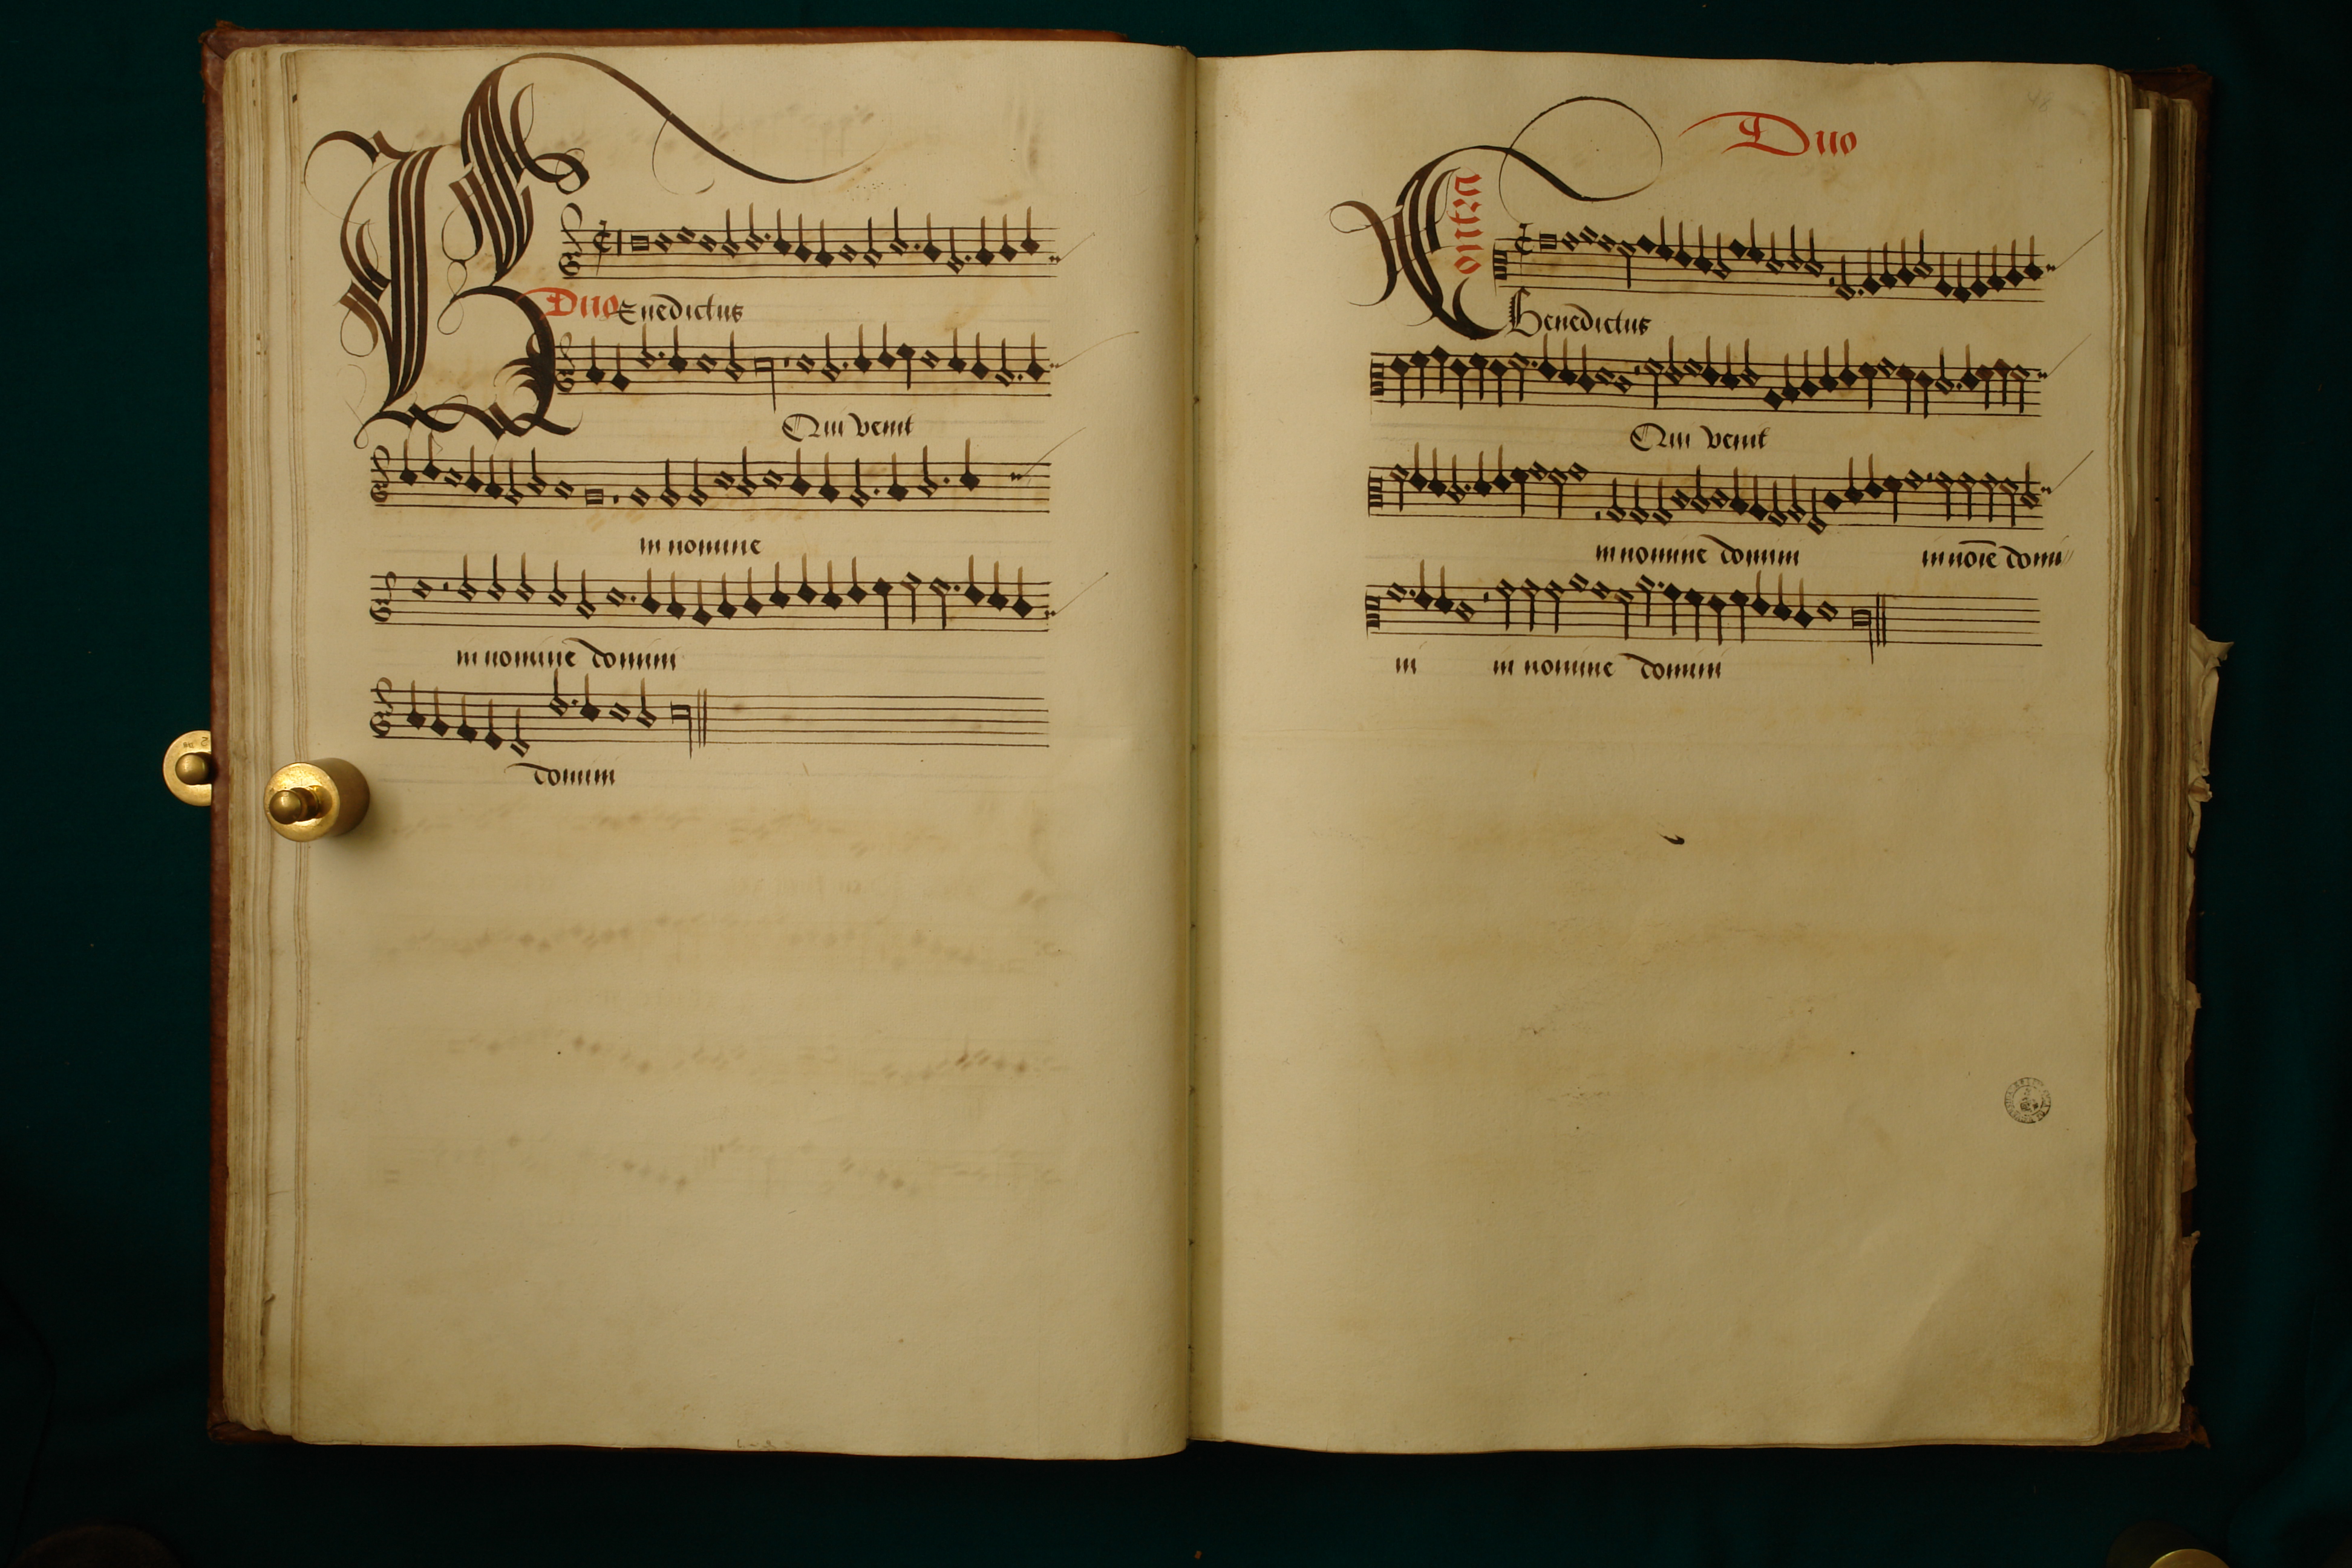 Duo Benedictus
Qui venit
in nomine
in nomine domini
domini
Duo
Contra
Benedictus
Qui venit
in nomine domini in noīe domi
ni in nomine domini